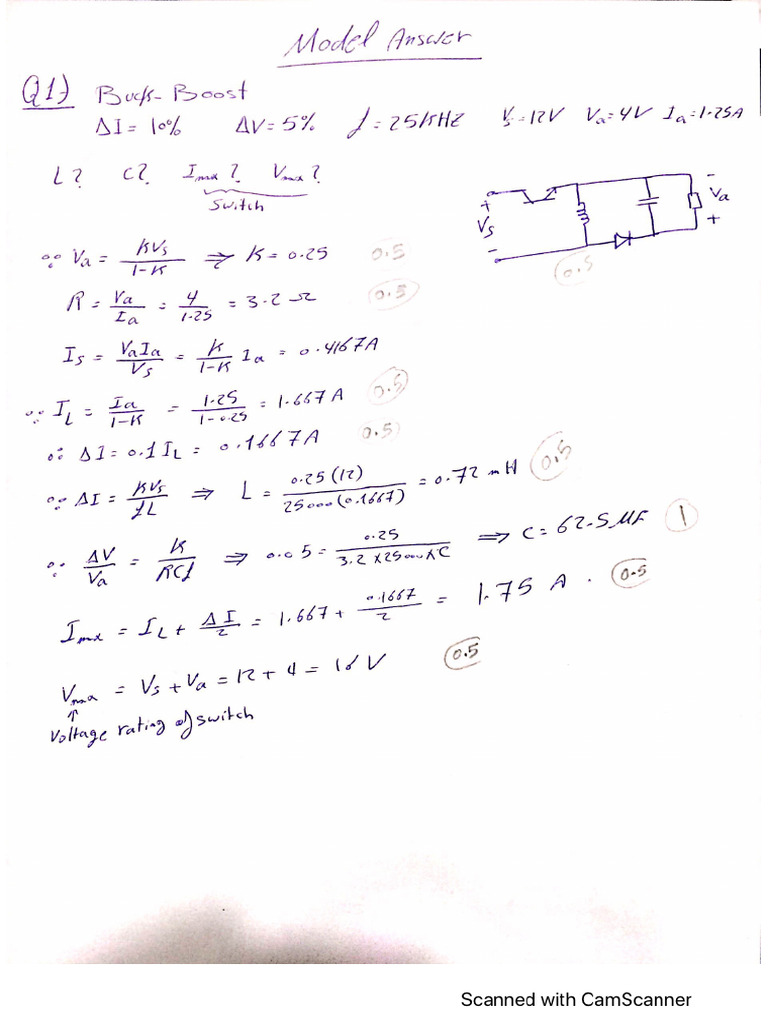 Model Answer
Q1) Buck-Boost
ΔI = 10% ΔV = 5% f = 25 KHz Vs = 12V Va = 4V Ia = 1.25A
L? C? Imax? Vmax?
Switch
+ Vs -
- Va +
∵ Va = KVs / 1-K ⇒ K = 0.25 0.5
0.5
R = Va / Ia = 4 / 1.25 = 3.2 Ω 0.5
Is = VaIa / Vs = K / 1-K Ia = 0.4167A
∵ IL = Ia / 1-K = 1.25 / 1-0.25 = 1.667 A 0.5
∴ ΔI = 0.1 IL = 0.1667 A 0.5
∵ ΔI = KVs / fL ⇒ L = 0.25 (12) / 25000 (0.1667) = 0.72 mH 0.5
∵ ΔV / Va = K / RCf ⇒ 0.05 = 0.25 / 3.2 x 25000 x C ⇒ C = 62.5 MF 1
Imax = IL + ΔI / 2 = 1.667 + 0.1667 / 2 = 1.75 A . 0.5
Vmax = Vs + Va = 12 + 4 = 16 V 0.5
↑
Voltage rating of switch
Scanned with CamScanner